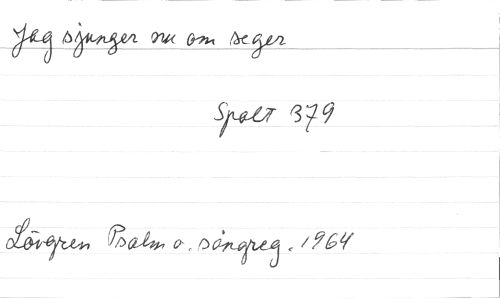 Jag sjunger nu om seger
Spalt 379
Lövgren Psalm o. sångreg. 1964